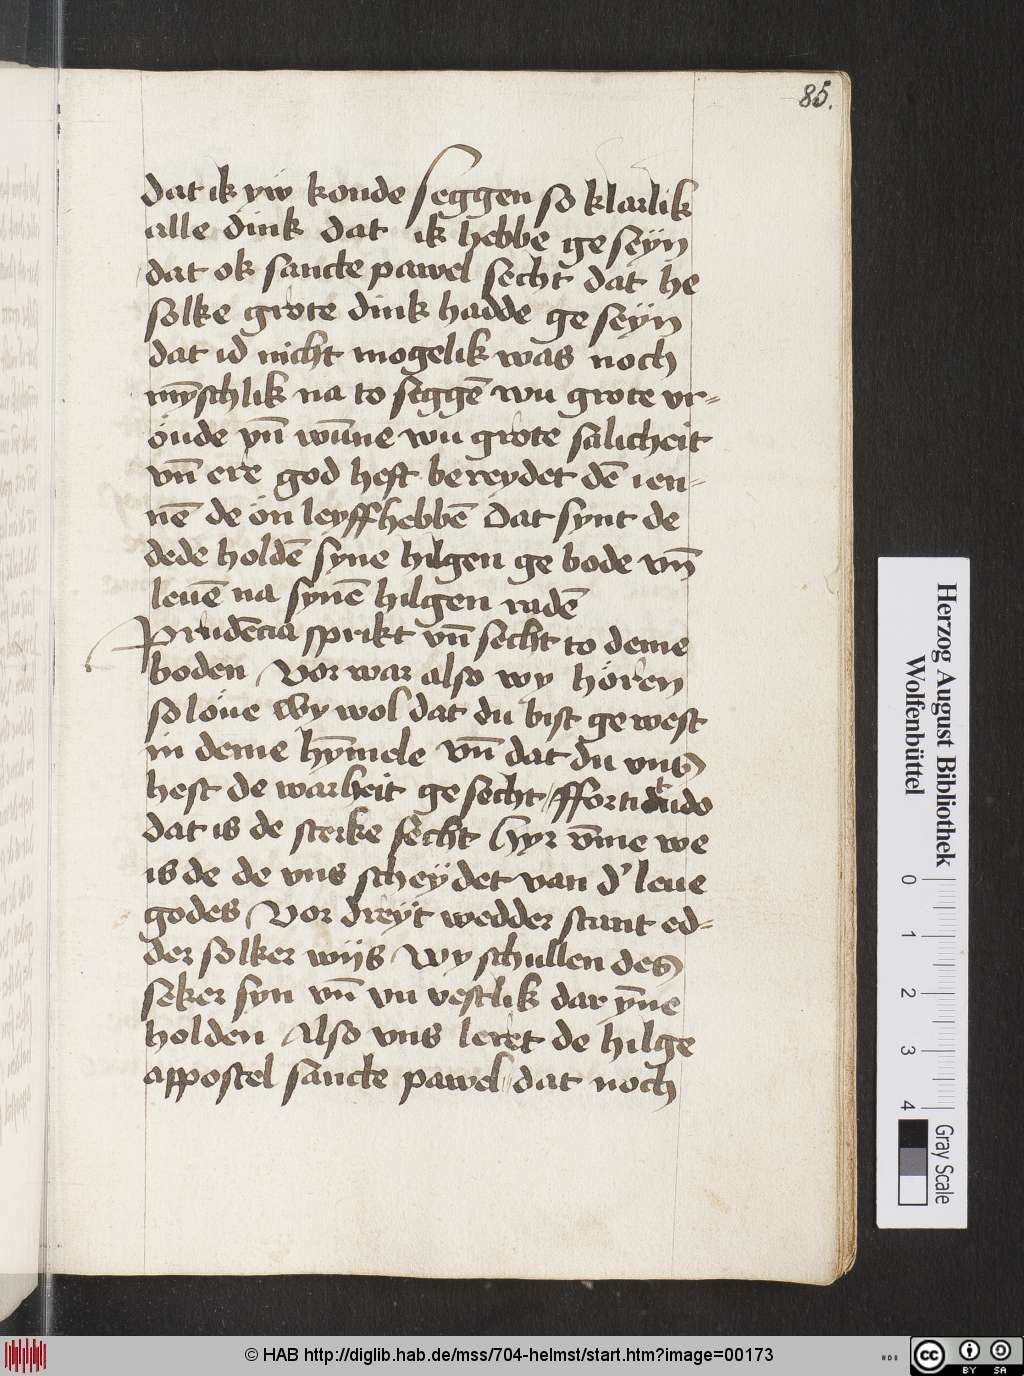 85.
dat ik yw konde seggen so klarlik
alle dink dat ik hebbe ge seyn
dat ok sancte pawel secht dat he
solke grote dink hadde ge seyn
dat id nicht mogelik was noch
mȳschlik na to seggē wu grote vr-
öude vn̄ wūne wu grote salicheit
vn̄ ere god heft be reydet dē ien-
nē de ön leyff hebbē Dat synt de
dede holdē syne hilgen ge bode vn̄
leuē na synē hilgen radē
Prudēcia sprikt vn̄ secht to deme
boden Vor war also wy hören
so löue wy wol dat du bist ge west
in deme hȳmele vn̄ dat du vns
hest de warheit ge secht / ffortitudo
dat is de sterke secht Hyr v̄me we
is de de vns scheydet van d' leue
godes Vor dreyt wedder stant ed-
der solker wijs Wy schullen des
seker syn vn̄ vn vestlik dar ȳne
holden Also vns leret de hilge
appostel sancte pawel / dat noch
Herzog August Bibliothek
Wolfenbüttel
0 1 2 3 4
Gray Scale
© HAB http://diglib.hab.de/mss/704-helmst/start.htm?image=00173
cc BY SA